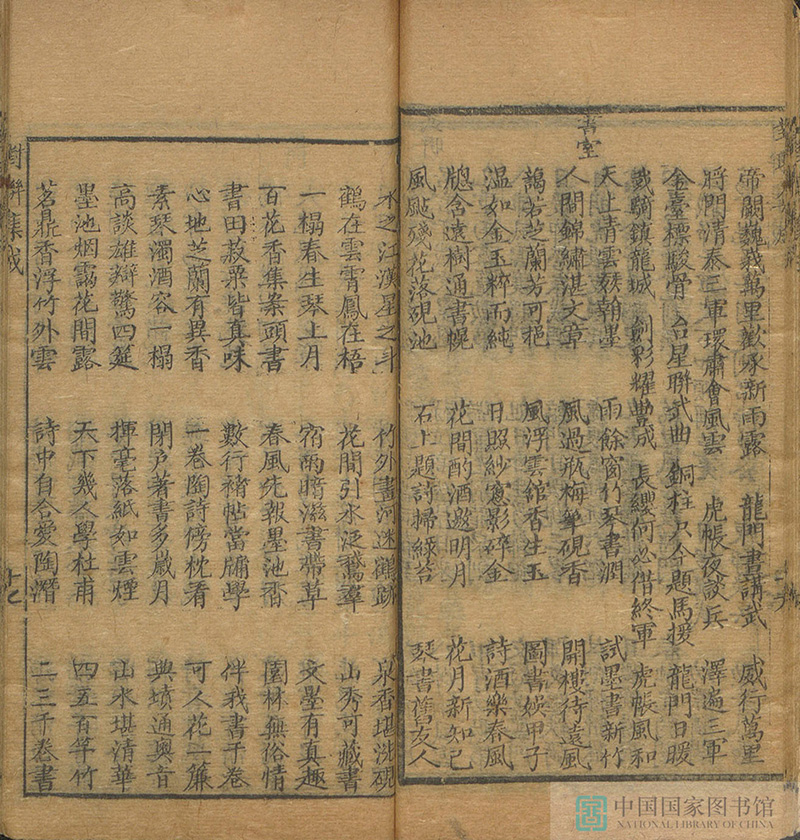 帝闕巍峩萬里歡承新雨露 龍門書講武 威行萬里
將門清泰三軍環肅會風雲 虎帳夜談兵 澤遍三軍
金臺標駿骨 台星聯武曲 銅柱只今題馬援 龍門日暖
鐵騎鎮龍城 劍彩耀豐城 長纓何必借終軍 虎帳風和
書室
天上青雲發翰墨 雨餘窗竹琴書潤 試墨書新竹
人間錦繡湛文章 風過瓶梅筆硯香 開樓待遠風
藹若芝蘭芳可挹 風浮雲舘香生玉 圖書娛甲子
温如金玉粹而純 日照紗窻影碎金 詩酒樂春風
牕含遠樹通書幌 花間酌酒邀明月 花月新知己
風颭殘花落硯池 石上題詩掃綠苔 琴書舊友人
水之江漢星之斗 竹外畫河迷鶴跡 泉香堪洗硯
鶴在雲霄鳳在梧 花間引水泛鵞羣 山秀可藏書
一榻春生琴上月 宿雨暗滋書帶草 文墨有真趣
百花香集案頭書 春風先報墨池香 園林無俗情
書田菽粟皆真味 數行禇帖當牕學 伴我書千卷
心地芝蘭有異香 一卷陶詩傍枕看 可人花一簾
素琴濁酒容一榻 閉戶著書多歲月 典墳通奧音
高談雄辯驚四筵 揮毫落紙如雲煙 山水堪清華
墨池烟靄花間露 天下幾人學杜甫 四五百竿竹
茗鼎香浮竹外雲 詩中自合愛陶潛 二三千卷書
對聯集成
十七
中国国家图书馆
NATIONAL LIBRARY OF CHINA